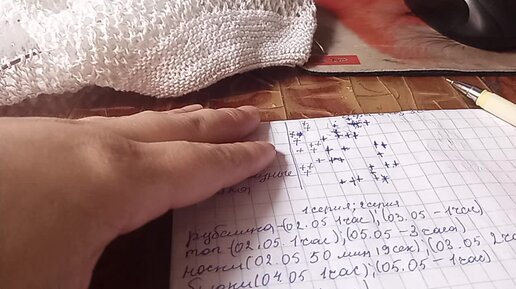 1 серия; 2 серия
рубашка - (02.05 1 час); (03.05 - 1 час)
топ - (02.05. 1 час); (05.05 - 3 часа)
носки (02.05 50 мин 19 сек) (03.05 2
(04.05 1 час); (05.05 - 1 час)